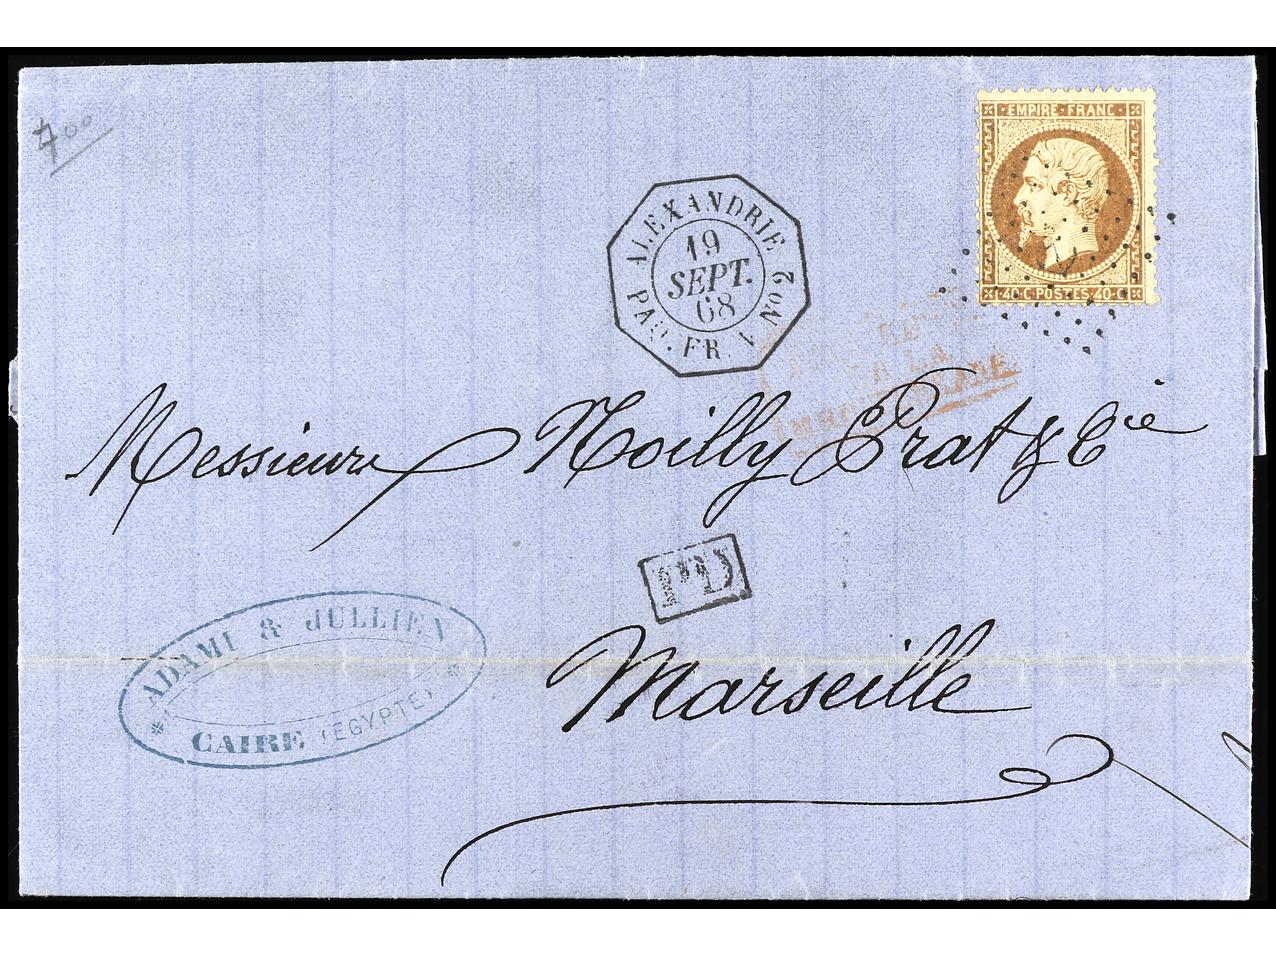 700
EMPIRE FRANC
40·C·POSTES·40·C
ALEXANDRIE
19
SEPT.
68
PAQ. FR. V No 2
Messieurs Noilly Prat & Cie
PD
Marseille
ADAMI & JULLIEN
CAIRE (EGYPTE)